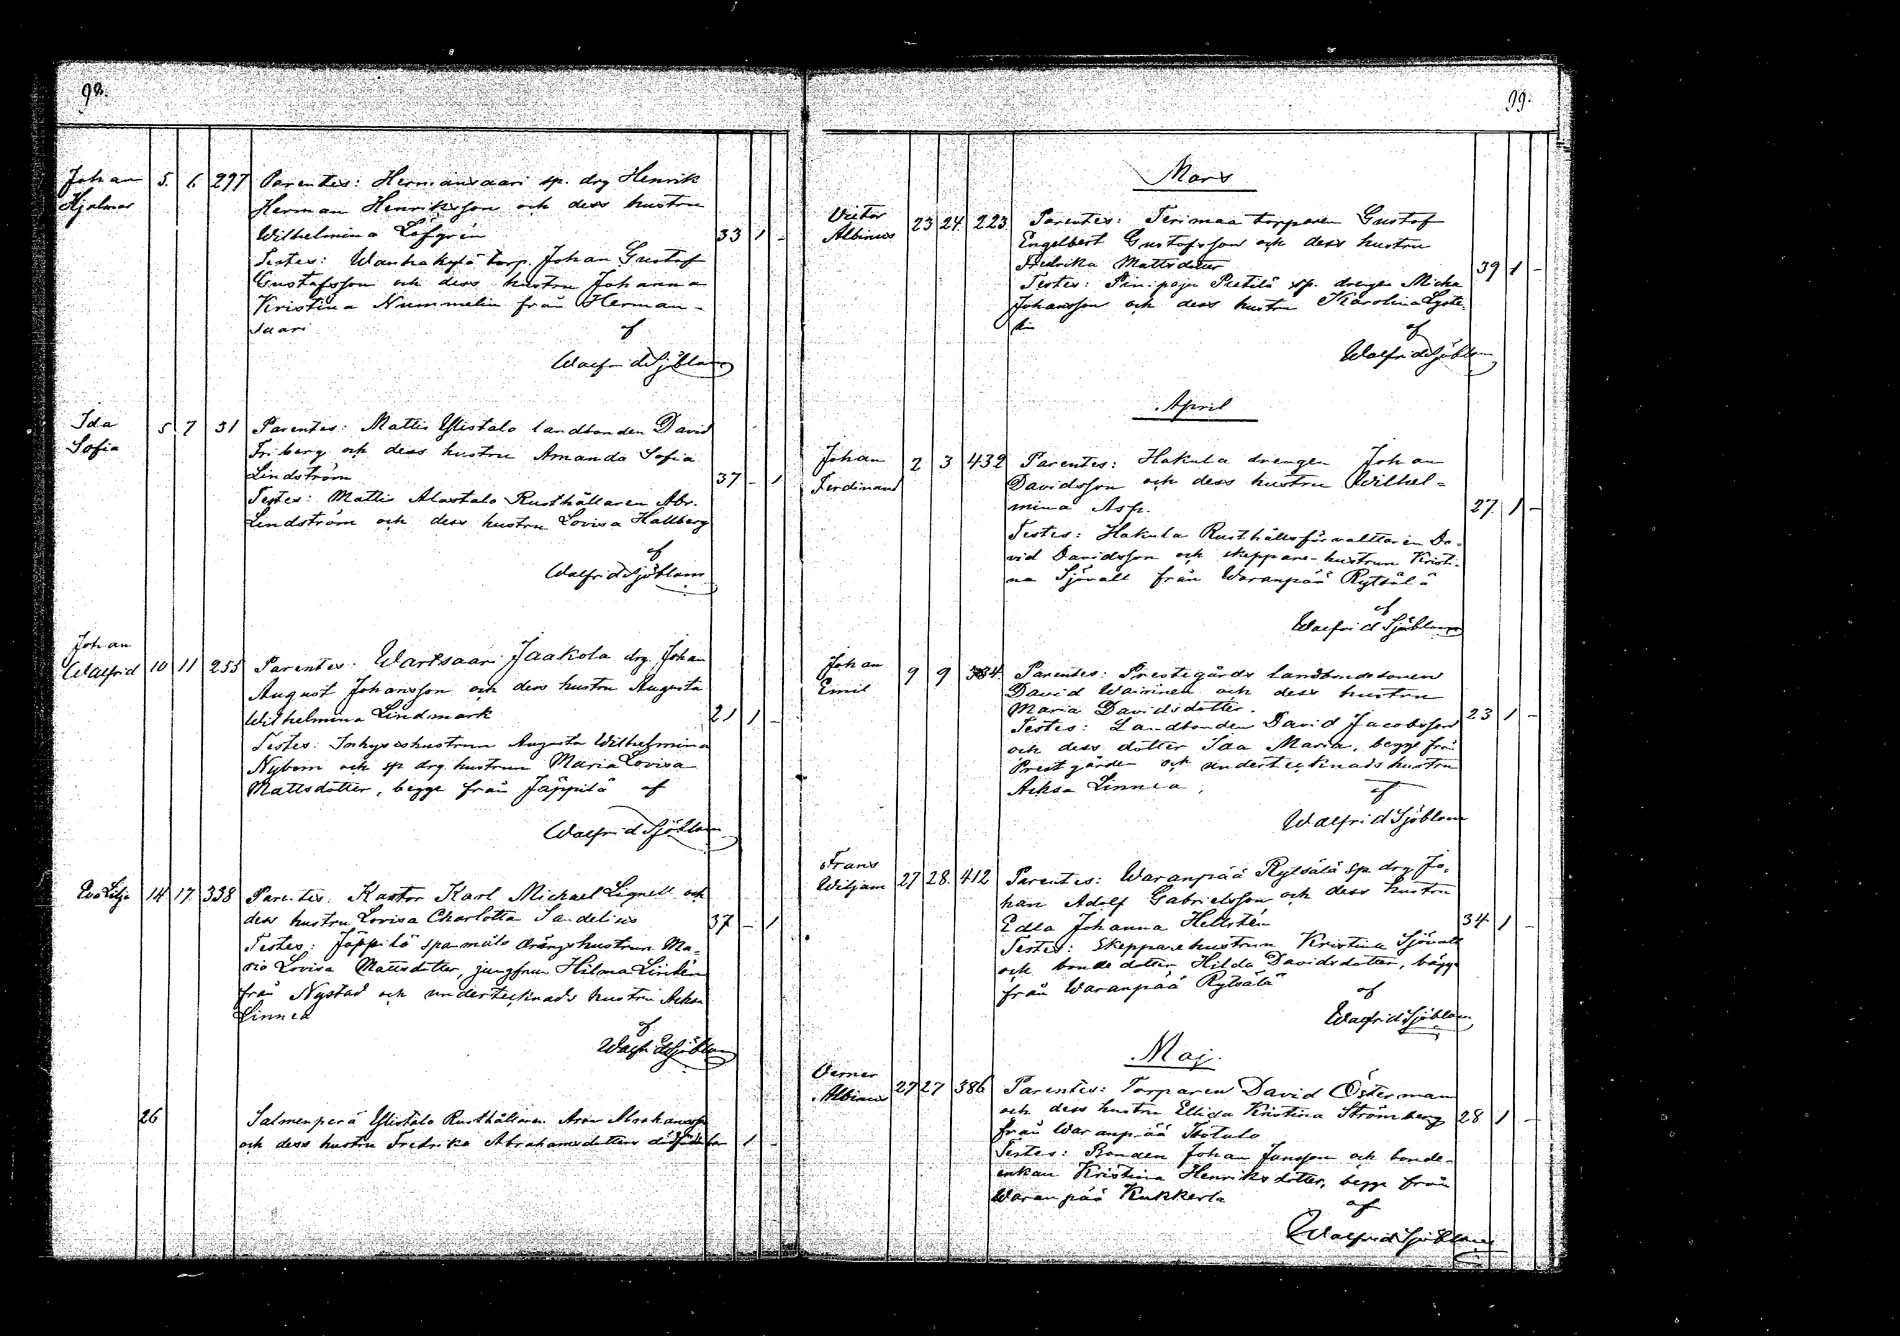 98.
Johan 5. 6. 297 Parentes: Hermansaari sp. drg Henrik
Hjalmar Herman Henriksson och dess hustru
Wilhelmina Löfgren 33 1 -
Testes: Wanhakylä torp. Johan Gustaf
Gustafsson och dess hustru Johanna
Kristina Nummelin från Herman-
saari af
Walfrid Sjöblom
Ida 5 7 31 Parentes: Mattis Ylistalo landbonden David
Sofia Friberg och dess hustru Amanda Sofia
Lindström 37 - 1
Testes: Mattis Alastalo Rusthållaren Abr.
Lindström och dess hustru Lovisa Hallberg
af
Walfrid Sjöblom
Johan
Walfrid 10 11 255 Parentes: Wartsaari Jaakola drg. Johan
August Johansson och dess hustru Augusta
Wilhelmina Lindmark 21 1 -
Testes: Inhyseshustrun Augusta Wilhelmina
Nybom och sp drg. hustrun Maria Lovisa
Mattsdotter, begge från Jäppilä af
Walfrid Sjöblom
Eva Lilja 14 17. 338 Parentes. Kantor Karl Michael Lignell och
dess hustru Lovisa Charlotta Sandelius 37 - 1
Testes: Jäppilä spanmåls drängshustrun Ma-
ria Lovisa Mattsdotter, jungfrun Hilma Lindén
från Nystad och undertecknads hustru Acksa
Linnea
af
Walfrid Sjöblom
26 Salmenperä Ylistalo Rusthållaren Aron Abrahamsson
och dess hustru Fredrika Abrahamsdotters dödfödda barn 1 -
99.
Mars
Victor 23 24. 223. Parentes: Terimaa torparen Gustaf
Albinus Engelbert Gustafsson och dess hustru
Fredrika Mattsdotter 39 1 -
Testes: Pinipaju Pietilä sp. drengen Micke
Johansson och dess hustru Karolina
af
Walfrid Sjöblom
April
Johan 2 3 432 Parentes: Hakula drengen Johan
Ferdinand Davidsson och dess hustru Wilhel-
mina Asp. 27. 1 -
Testes: Hakula Rusthållsförvaltaren Da-
vid Davidsson och skeppare-hustrun Kristi-
na Sjövall från Waranpää Rytsälä
af
Walfrid Sjöblom
Johan 9 9 384. Parentes: Prestegårds landbondsonen
Emil David Wairinen och dess hustru
Maria Davidsdotter. 23 1 -
Testes: Landbonden David Jacobsson
och dess dotter Ida Maria, begge från
Prestgården och undertecknads hustru
Acksa Linnea,
af
Walfrid Sjöblom
Frans
Wiljam 27 28. 412 Parentes: Waranpää Rytsälä sp. drg Jo-
han Adolf Gabrielsson och dess hustru
Edla Johanna Hellstén 34. 1 -
Testes: Skepparehustrun Kristina Sjövall
och bonde dotter Hilda Davidsdotter, bägge
från Waranpää Rytsälä
af
Walfrid Sjöblom
Maj.
Verner
Albinus 27 27 386 Parentes: Torparen David Österman
och dess hustru Ellida Kristina Strömberg 28 1 -
från Waranpää Isotalo
Testes: Bonden Johan Jansson och bonde-
enkan Kristina Henriksdotter, begge från
Waranpää Kukkerla
af
Walfrid Sjöblom